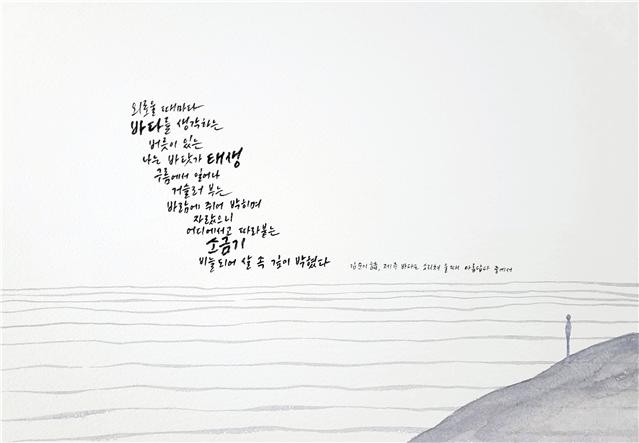 외로울 때마다
바다를 생각하는
버릇이 있는
나는 바닷가 태생
구름에서 일어나
거슬러 부는
바람에 쥐어 박히며
자랐으니
어디에서고 따라붙는
소금기
비늘되어 살 속 깊이 박혔다
김순이 詩, 제주 바다는 소리쳐 울 때 아름답다 중에서